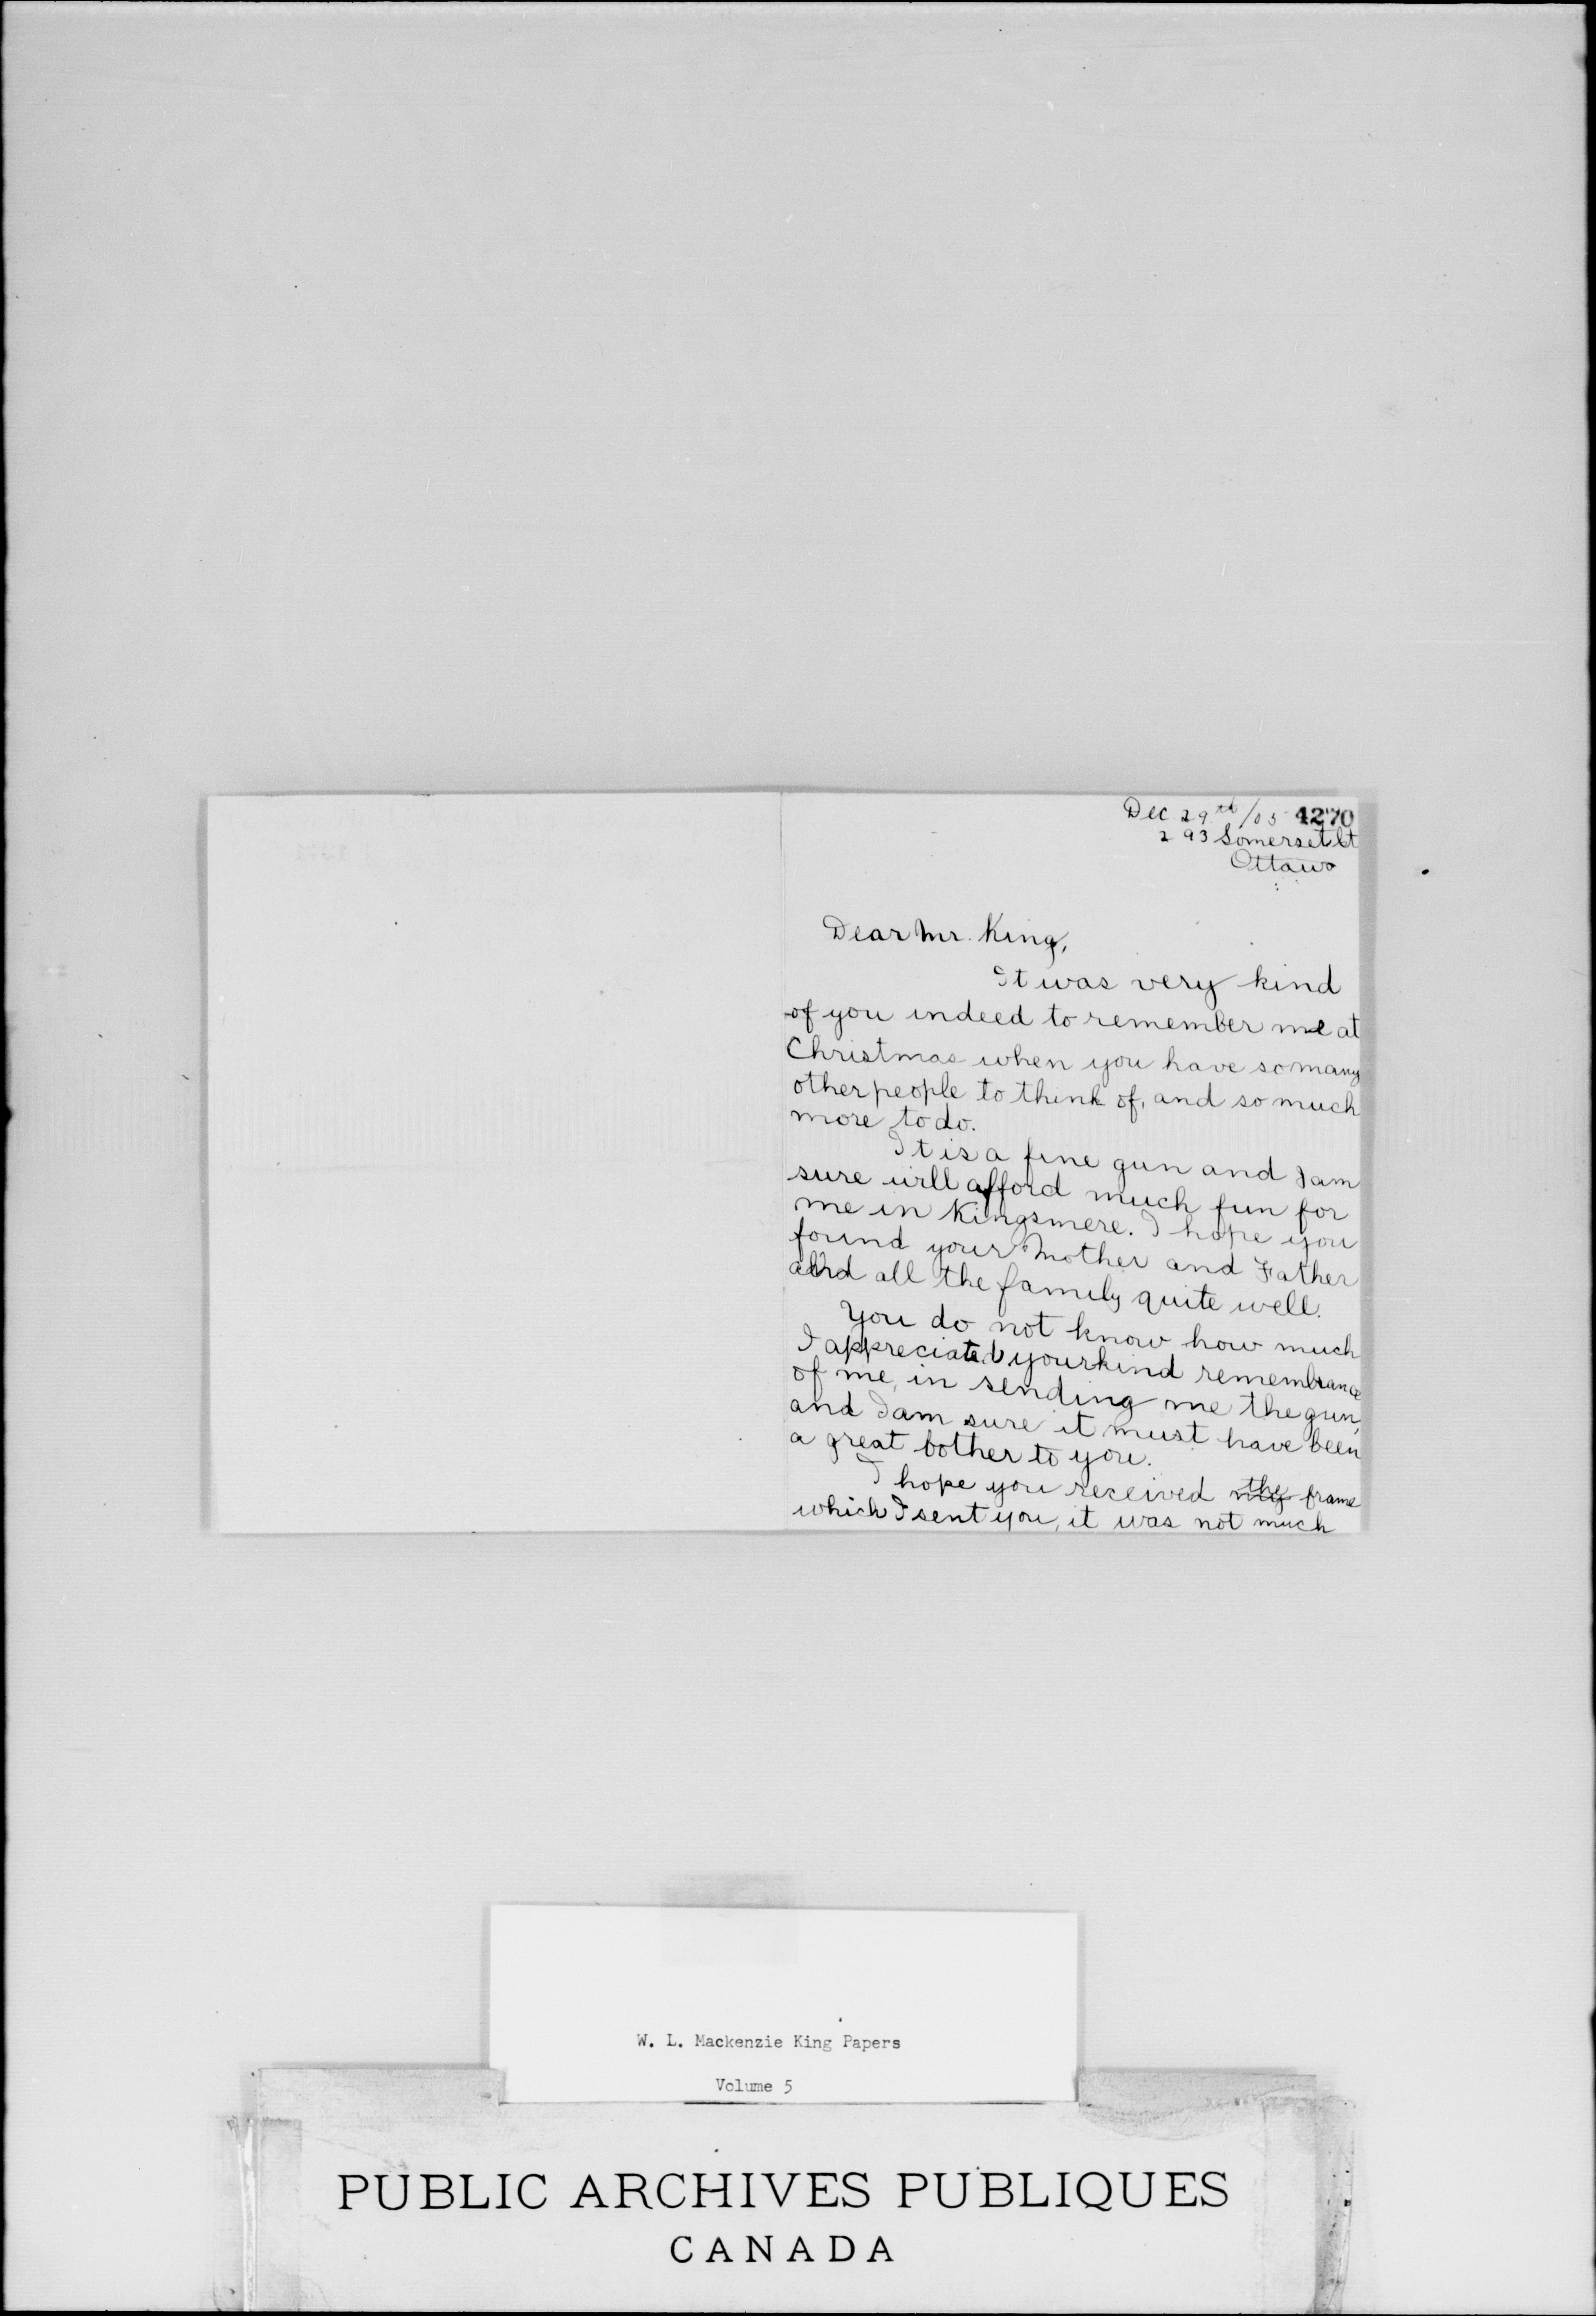 Dec 29th/05 4270
293 Somerset St
Ottawa
Dear Mr. King,
It was very kind
of you indeed to remember me at
Christmas when you have so many
other people to think of, and so much
more to do.
It is a fine gun and I am
sure will afford much fun for
me in Kingsmere. I hope you
found your Mother and Father
and all the family quite well.
You do not know how much
I appreciated your kind remembrance
of me, in sending me the gun,
and I am sure it must have been
a great bother to you.
I hope you received the frame
which I sent you, it was not much
W. L. Mackenzie King Papers
Volume 5
PUBLIC ARCHIVES PUBLIQUES
CANADA